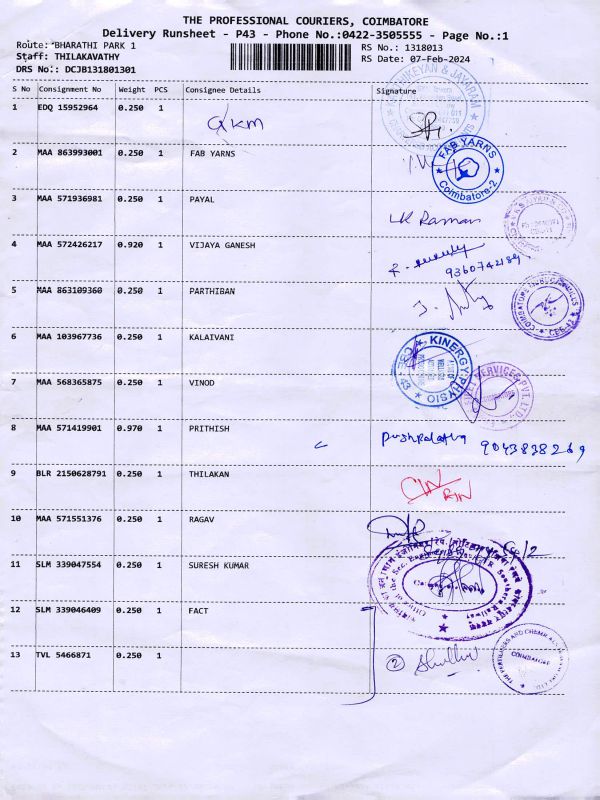 THE PROFESSIONAL COURIERS, COIMBATORE
Delivery Runsheet - P43 - Phone No.:0422-3505555 - Page No.:1
Route: BHARATHI PARK 1 RS No.: 1318013
Staff: THILAKAVATHY RS Date: 07-Feb-2024
DRS No.: DCJB131801301
S No Consignment No Weight PCS Consignee Details Signature
1 EDQ 15952964 0.250 1 GKM
2 MAA 863993001 0.250 1 FAB YARNS
FAB YARNS Coimbatore-2
3 MAA 571936981 0.250 1 PAYAL
LK Raman
4 MAA 572426217 0.920 1 VIJAYA GANESH
9360742189
5 MAA 863109360 0.250 1 PARTHIBAN
6 MAA 103967736 0.250 1 KALAIVANI
KINERGY PHYSIO
7 MAA 568365875 0.250 1 VINOD
SERVICES PVT. LTD.
8 MAA 571419901 0.970 1 PRITHISH
Pushpalatha 9043838269
9 BLR 2150628791 0.250 1 THILAKAN
10 MAA 571551376 0.250 1 RAGAV
11 SLM 339047554 0.250 1 SURESH KUMAR
12 SLM 339046409 0.250 1 FACT
13 TVL 5466871 0.250 1
2
COIMBATORE